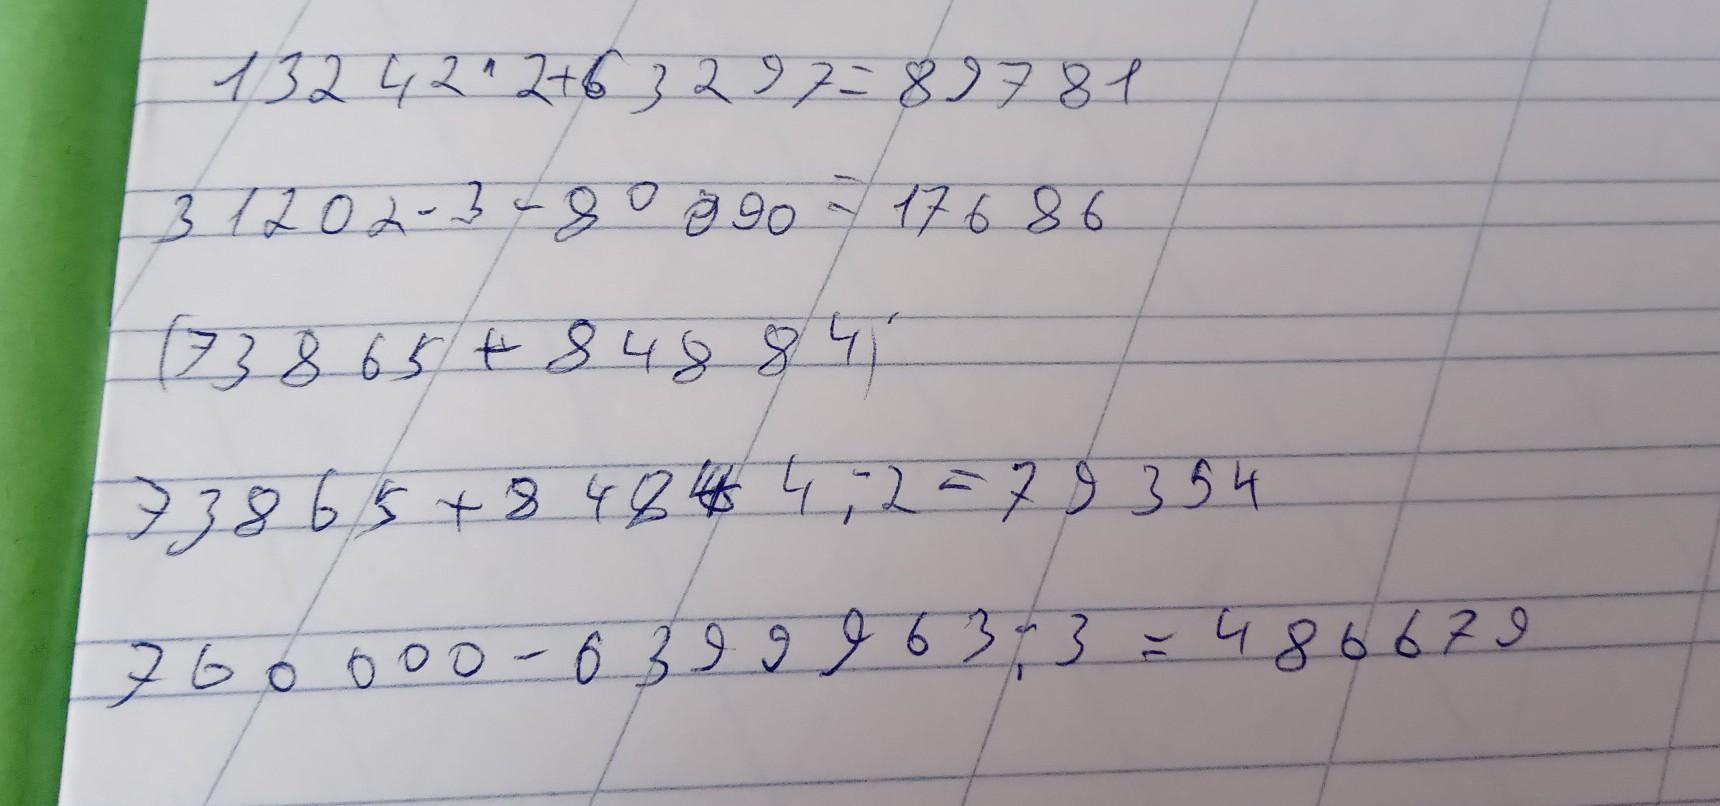 13242·2+63297=89781
31202·3-80 090=17686
(73865+84884):
73865+84844:2=79354
760000-6399963:3=486679